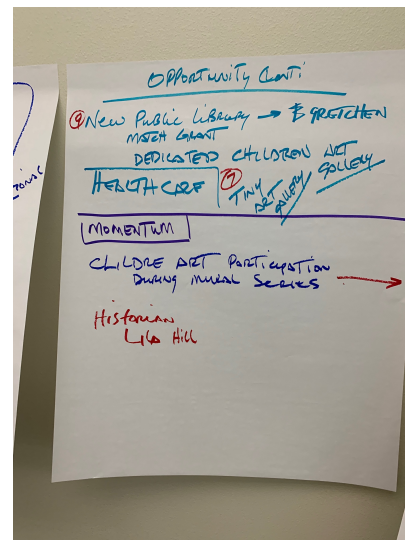 OPPORTUNITY CONTI
9 NEW PUBLIC LIBRARY → $ GRETCHEN
MATCH GRANT
DEDICATED CHILDREN ART GALLERY
HEALTHCARE
7 TINY ART GALLERY
MOMENTUM
CLILDRE ART PARTICIPATION
DURING MURAL SERIES →
Historian
Lila Hill